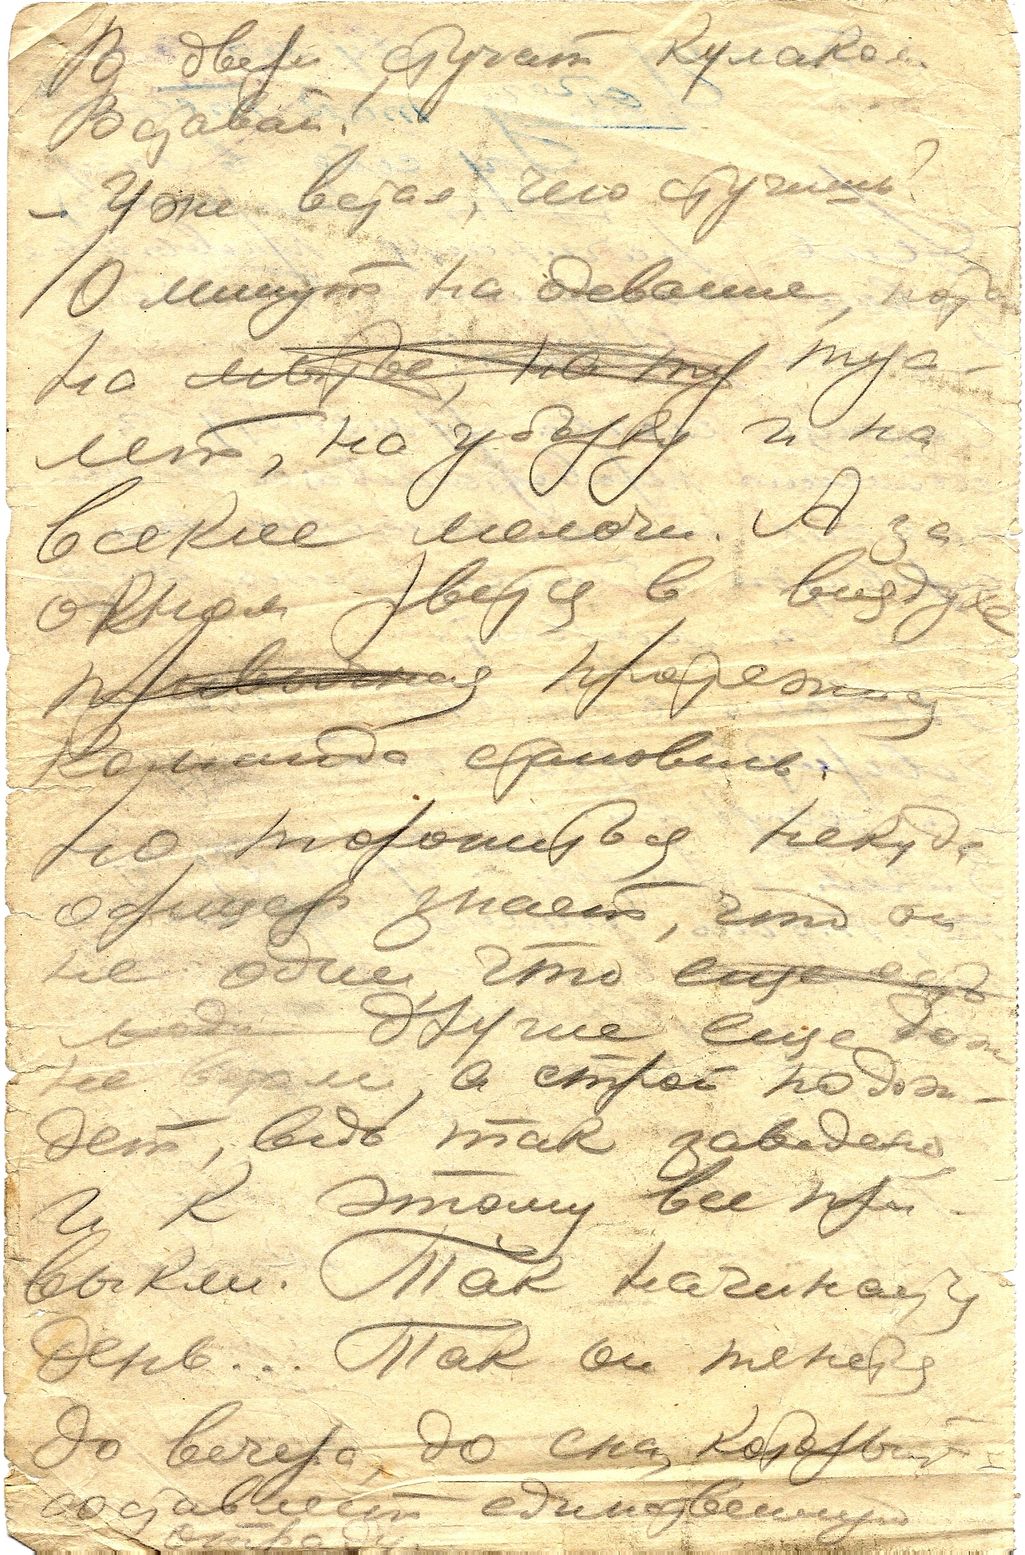 В двери стучат кулаком.
Вставай.
– Уже встал, чего стучишь?
10 минут на одевание,
на мытье, на ту туа-
лет, на уборку и на
всякие мелочи. А за
окном рвется в воздухе
привычная протяжная
команда становись.
Но торопиться некуда
офицер знает, что он
не один, что еще есть
люди другие еще тоже
не встали, а строй подож-
дет, ведь так заведено
и к этому все при-
выкли. Так начинался
день... Так он тянется
до вечера, до сна, который
составляет единственную
отраду.